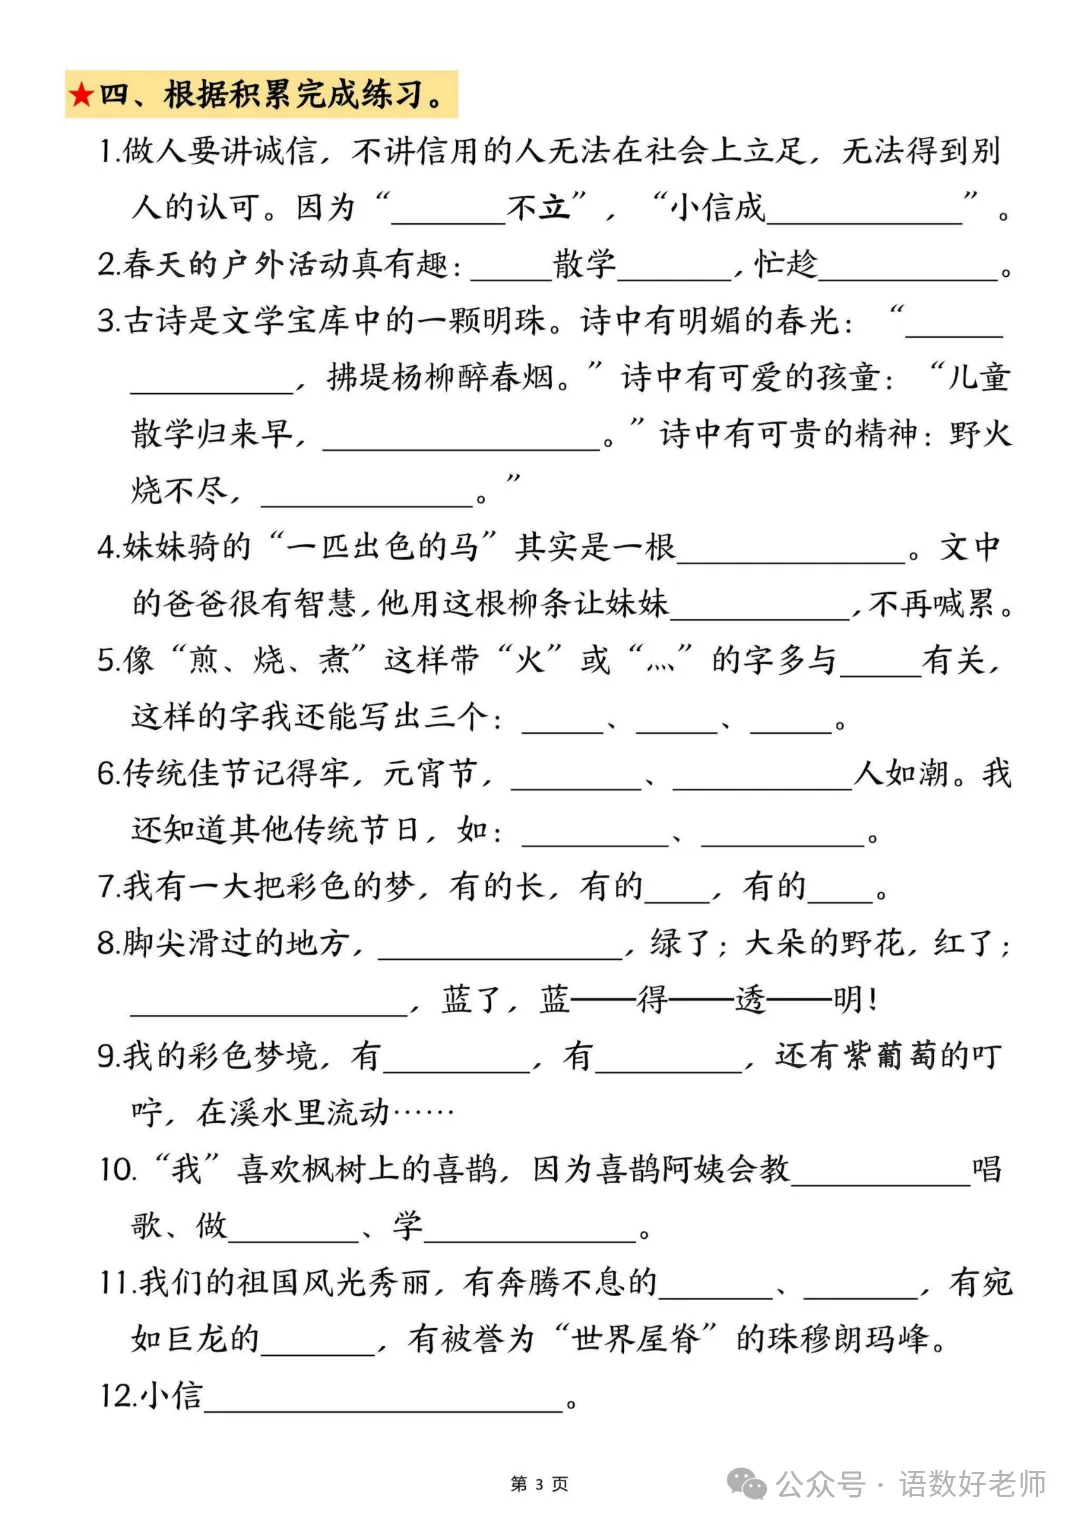 ★四、根据积累完成练习。
1.做人要讲诚信，不讲信用的人无法在社会上立足，无法得到别
人的认可。因为“_______不立”，“小信成____________”。
2.春天的户外活动真有趣：_____散学_______，忙趁___________。
3.古诗是文学宝库中的一颗明珠。诗中有明媚的春光：“______
__________，拂堤杨柳醉春烟。”诗中有可爱的孩童：“儿童
散学归来早，_________________。”诗中有可贵的精神：野火
烧不尽，_____________。”
4.妹妹骑的“一匹出色的马”其实是一根______________。文中
的爸爸很有智慧，他用这根柳条让妹妹___________，不再喊累。
5.像“煎、烧、煮”这样带“火”或“灬”的字多与_____有关，
这样的字我还能写出三个：_____、_____、_____。
6.传统佳节记得牢，元宵节，________、___________人如潮。我
还知道其他传统节日，如：_________、__________。
7.我有一大把彩色的梦，有的长，有的____，有的____。
8.脚尖滑过的地方，_______________，绿了；大朵的野花，红了；
_________________，蓝了，蓝——得——透——明！
9.我的彩色梦境，有_________，有_________，还有紫葡萄的叮
咛，在溪水里流动……
10.“我”喜欢枫树上的喜鹊，因为喜鹊阿姨会教___________唱
歌、做________、学_____________。
11.我们的祖国风光秀丽，有奔腾不息的_______、_______，有宛
如巨龙的_______，有被誉为“世界屋脊”的珠穆朗玛峰。
12.小信______________________。
第 3 页
公众号·语数好老师